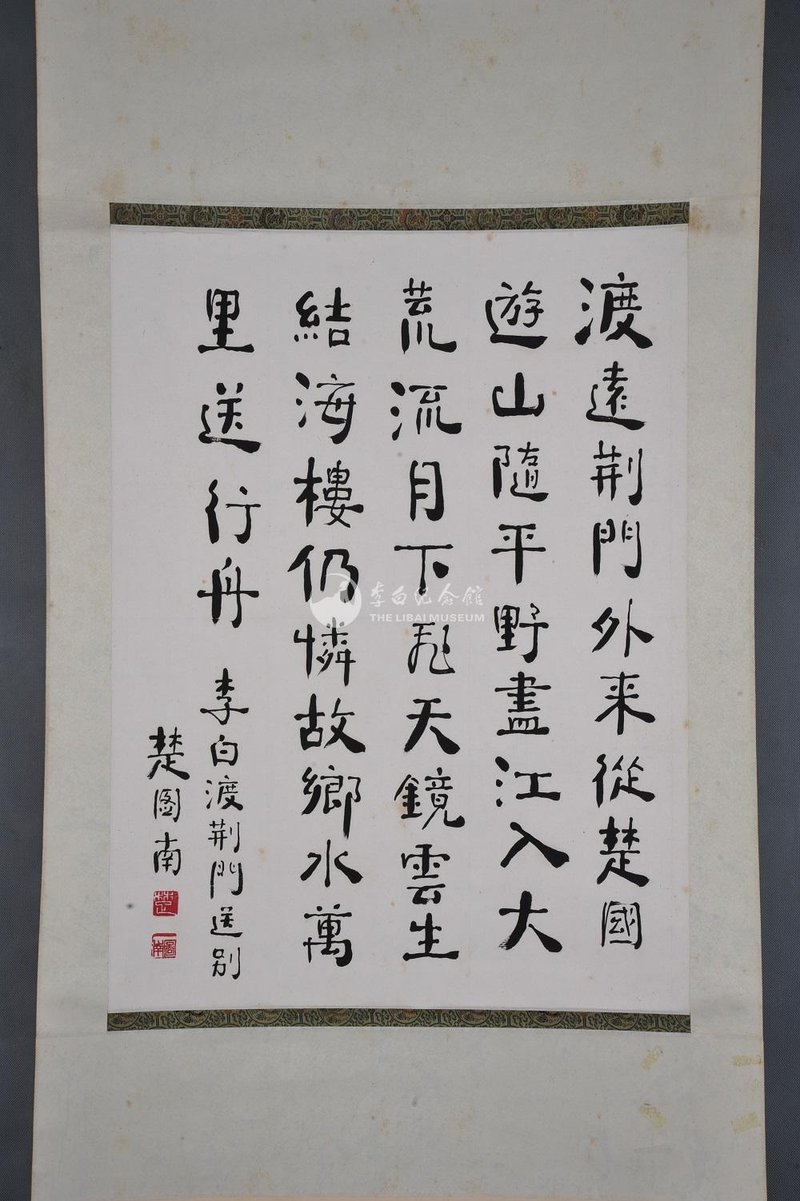 渡遠荆門外来從楚國
遊山隨平野盡江入大
荒流月下飛天鏡雲生
結海樓仍憐故鄉水萬
里送行舟
李白渡荆門送别
楚图南
楚
圖南
李白纪念館
THE LIBAI MUSEUM